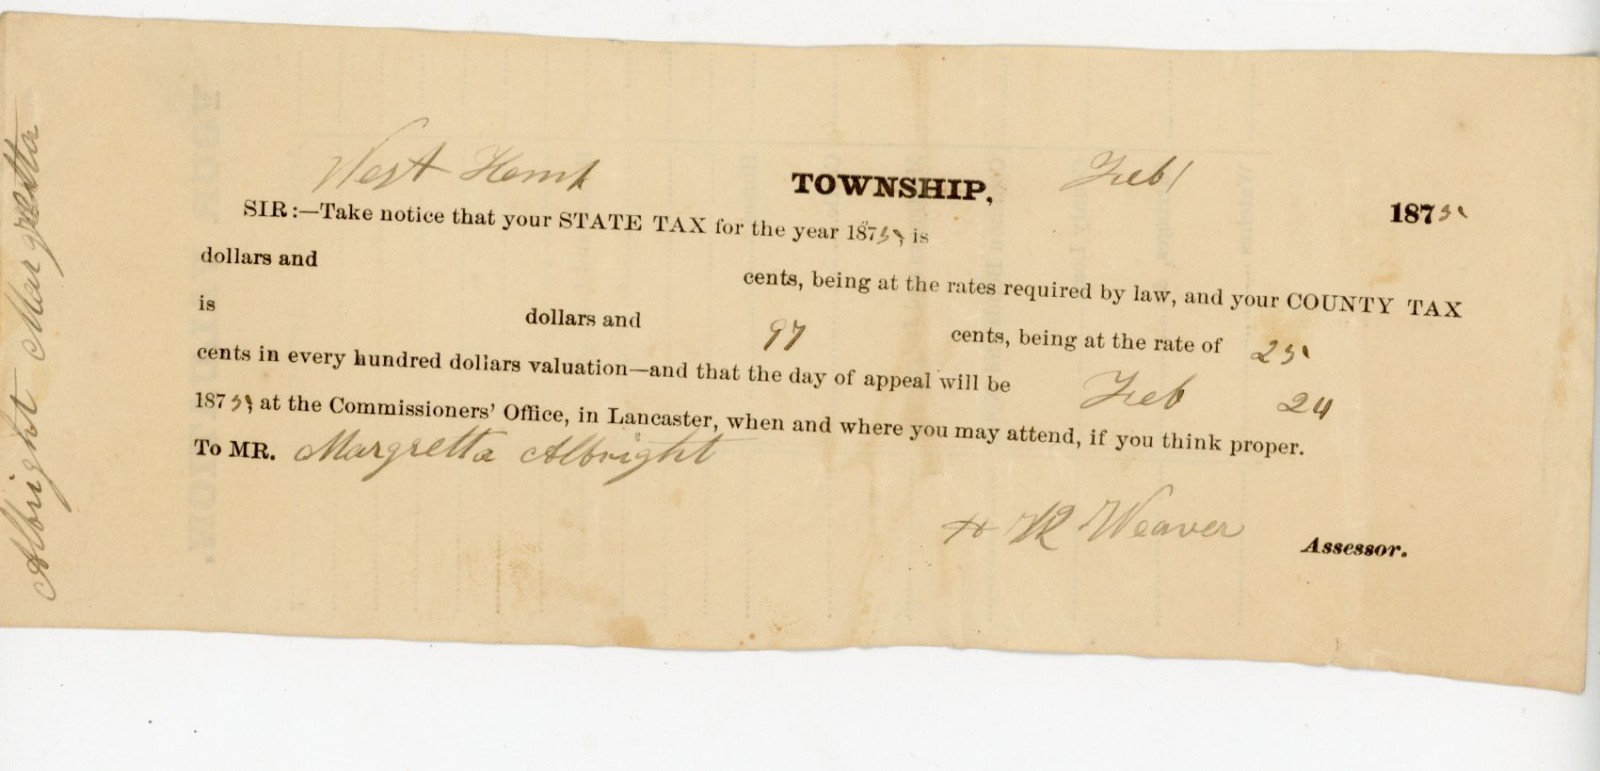 West Hemp TOWNSHIP, Feb 1 1875
SIR:—Take notice that your STATE TAX for the year 1875, is
dollars and cents, being at the rates required by law, and your COUNTY TAX
is dollars and 97 cents, being at the rate of 25
cents in every hundred dollars valuation—and that the day of appeal will be Feb 24
1875, at the Commissioners' Office, in Lancaster, when and where you may attend, if you think proper.
To MR. Margretta Albright
Weaver Assessor.
Albright Margretta